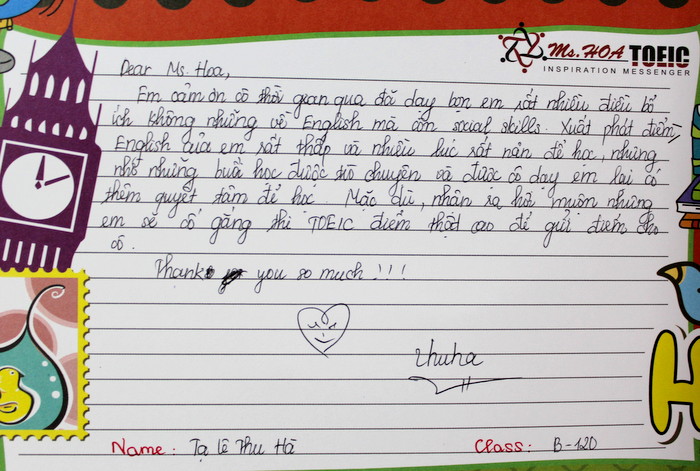 Ms. HOA TOEIC
INSPIRATION MESSENGER
Dear Ms. Hoa,
Em cảm ơn cô thời gian qua đã dạy bọn em rất nhiều điều bổ
ích không những về English mà còn social skills. Xuất phát điểm
English của em rất thấp và nhiều lúc rất nản để học, nhưng
nhờ những buổi học được trò chuyện và được cô dạy em lại có
thêm quyết tâm để học. Mặc dù, nhận ra hơi muộn nhưng
em sẽ cố gắng thi TOEIC điểm thật cao để gửi điểm cho
cô.
Thank you so much !!!
thuha
Name: Tạ Lê Thu Hà
Class: B-120
H